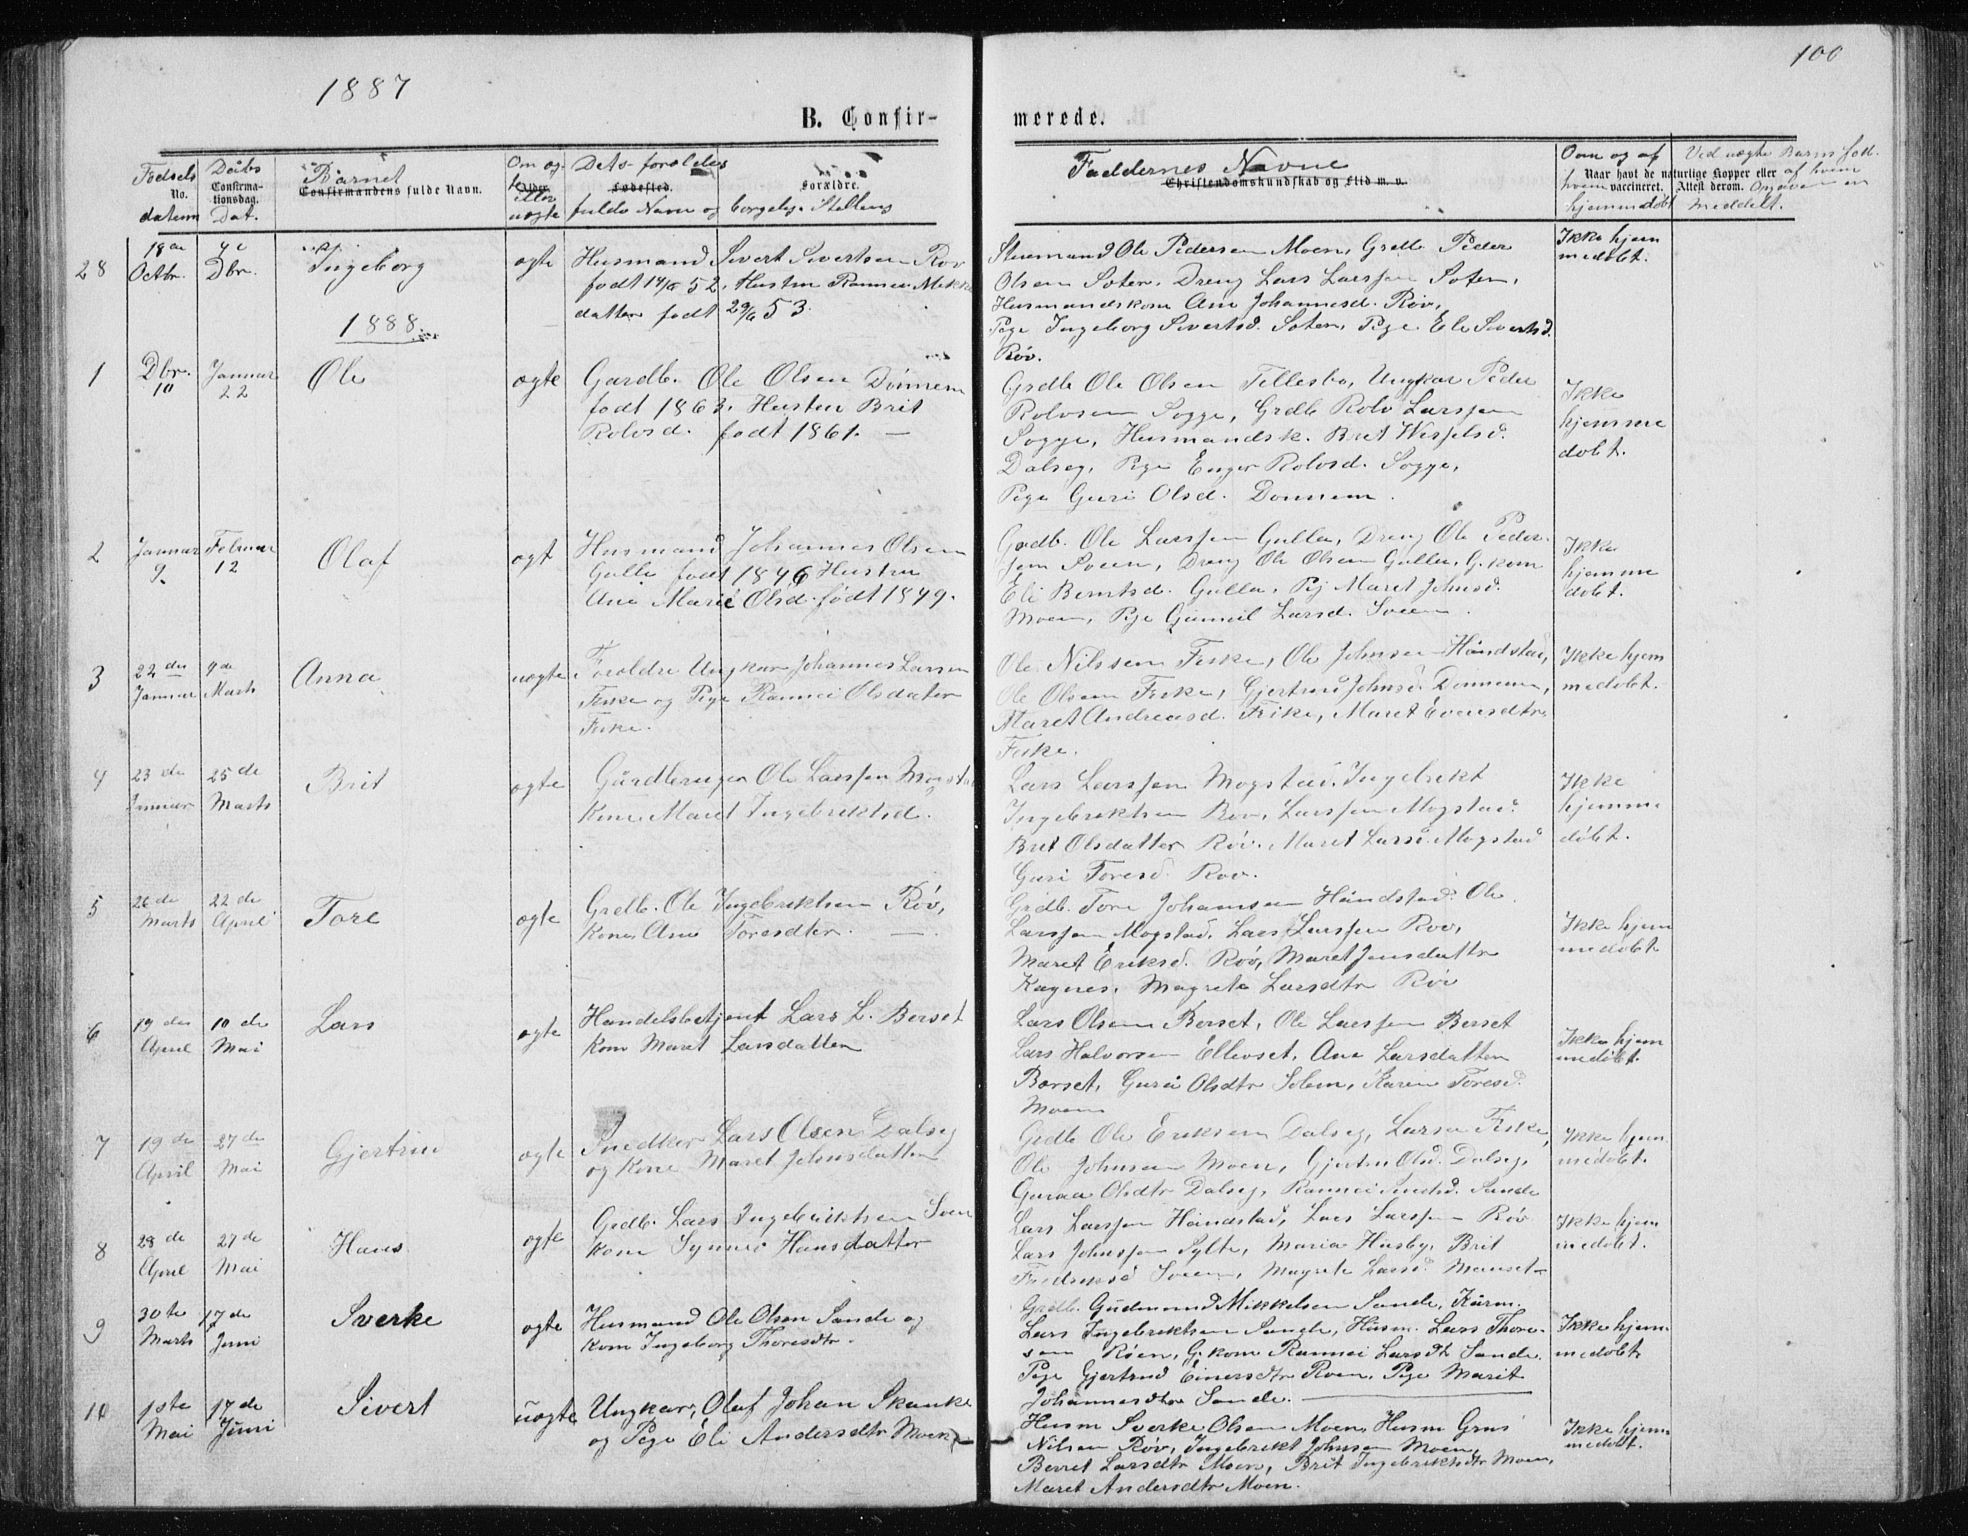 1887
100
B. Confir-
merede.
Fødsels datum
No.
Daabs Dat.
Confirma-
tionsdag.
Barnet
Confirmandens fulde Navn.
Om ægte eller uægte
Alder.
Dets forældres
Fødested.
Forældre.
fulde Navn og borgelige Stilling
Faddernes Navne
Christendomskundskab og Flid m. v.
Om og af hvem hjemmedøbt
Naar havt de naturlige Kopper eller
vaccineret. Attest derom.
Ved uægte Barns fød.
af hvem
Opgaven er
meddelt.
28
18de Octbr.
4de Dbr.
Ingeborg
ægte
Husmand Sivert Sivertsen Røv
født 14/8 52. Hustru Rannei Mikkel
datter født 29/6 53.
Skuemand Ole Pedersen Moen, Grdb Peder
Olsen Soten, Dreng Lars Larssen Soten,
Husmandskone Ane Johannesd. Røv,
Pige Ingeborg Sivertsd. Soten, Pige Eli Sivertsd.
Røv.
Ikke hjem
medøbt.
1888.
1
Dbr. 10
Januar 22
Ole
ægte
Gardb. Ole Olsen Dønnem
født 1863. Hustru Brit
Rolvsd. født 1861. —
Grdb Ole Olsen Tellesbø, Ungkar Peder
Rolvsen Sogge, Grdb Rolv Larssen
Sogge, Husmandsk. Bret Wesselsd.
Dalseg, Pige Enger Rolvsd. Sogge,
Pige Guri Olsd. Donnem.
Ikke
hjemme
døbt.
2
Januar 9.
Februar 12
Olaf
ægt
Husmand Johannes Olsen
Gulla født 1846 Hustru
Ane Marie Olsd. født 1849.
Gadb. Ole Larssen Gulla, Dreng Ole Peder-
sen Sveen, Dreng Ole Olsen Gulla, G. kone
Eli Berntsd. Gulla, Pig Maret Johnsd.
Moen, Pige Gunnil Larsd. Sveen.
Ikke
hjemme
døbt.
3
22 den Januar
4 de Marts
Anna
uægte
Foroldre Ungkar Johannes Larsen
Feske og Pige Rannei Olsdater
Feske.
Ole Nilssen Feske, Ole Johnsen Håndstad,
Ole Olsen Feske, Gjertrud Johnsd. Donnem,
Maret Andreasd. Feske, Maret Evensdtr
Feske.
Ikke hjem
medøbt.
4
23 de Januar
25 de Marts
Brit
ægte
Gårdbruger Ole Larssen Mogstad
Kone Maret Ingebriktsd.
Lars Larssen Mogstad. Ingebrekt
Ingebrektsen Røv, Larssen Mogstad.
Bret Olsdatter Røv. Maret Larsd. Mogstad
Guri Toresd. Røv.
Ikke
hjemme
døbt.
5
26 de Marts
22 de April
Tore
ægte
Grdb. Ole Ingebrektsen Røv,
Kone Ane Toresdter. —
Grdb. Tore Johansen Håndstad. Ole
Larssen Mogstad. Lars Larssen Røv,
Maret Eriksd. Røv, Maret Jensdattr
Kagnes, Magrete Larsdtr Røv
Ikke hjem
medøbt
6
19 den April
10 de Mai
Lars
ægte
Handelsbetjent Lars L. Berset
Kone Maret Larsdatter
Lars Olsen Berset, Ole Larssen Berset
Lars Halvorsen Ellevset. Ane Larsdatter
Børset, Guri Olsdtr Solem, Karen Toresd.
Moen
Ikke hjem
medøbt.
7
19 de April
27 de Mai
Gjertrud
ægte
Snedker Lars Olsen Dalseg
og Kone Maret Johnsdatter
Grdb Ole Eriksen Dalseg, Larsen Feske,
Ole Johnsen Moen, Gjertru Olsd. Dalseg,
Guraa Olsdtr Dalseg, Rannei Sande
Ikke hjem
medøbt.
8
28 de April
27 de Mai
Hans
ægte
Grdb. Lars Ingebriktsen Sven
kone Synnev Hansdatter
Lars Larssen Håndstad, Lars Larssen Røv
Lars Johnssen Sylte, Maria Husby, Brit
Fredreksd Sveen, Magrete Larsd. Mauset
Ikke hjem
medøbt.
9
30 te Marts
17 de Juni
Sverke
ægte
Husmand Ole Olsen Sande og
Kone Ingeborg Thoresdtr.
Grdb. Gudmund Mikkelsen Sande, Kårm.
Lars Ingebriktsen Sande, Husm. Lars Thore-
sen Røen, G. kone Rannei Larsdt Sande.
Pige Gjertrud Einersdtr Roen, Pige Marit
Johannesdtr Sande.
Ikke hjem
medøbt
10
1ste Mai
17 de Juni
Sivert
uægte
Ungkar, Olaf Johan Skanke
og Pige Eli Andersdtr Moen
Husm Sverke Olsen Moen, Husm Gruš
Nilsen Røv, Ingebrekt Johnsen Moen,
Berret Larsdtr Moen, Brit Ingebriktsdtr Moen,
Maret Andersdtr Moen.
Ikke hjem
medøbt.